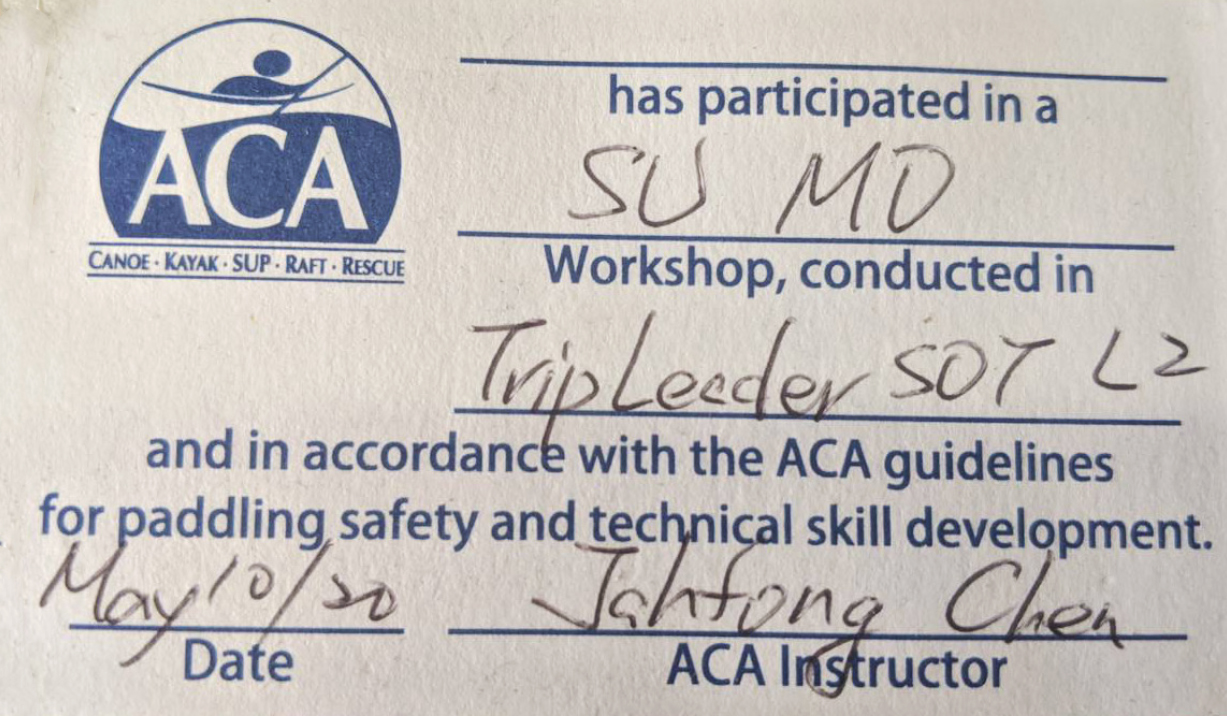 ACA
CANOE · KAYAK · SUP · RAFT · RESCUE
has participated in a
SU MO
Workshop, conducted in
Trip Leader SOT L2
and in accordance with the ACA guidelines
for paddling safety and technical skill development.
May 10/20 Jahfong Chen
Date ACA Instructor